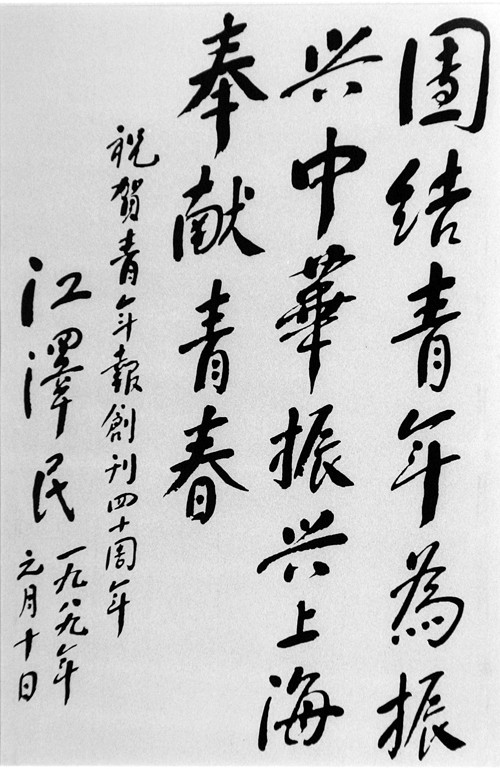 團结青年為振
兴中華振兴上海
奉献青春
祝贺青年報創刊四十周年
江澤民
一九八九年
元月十日